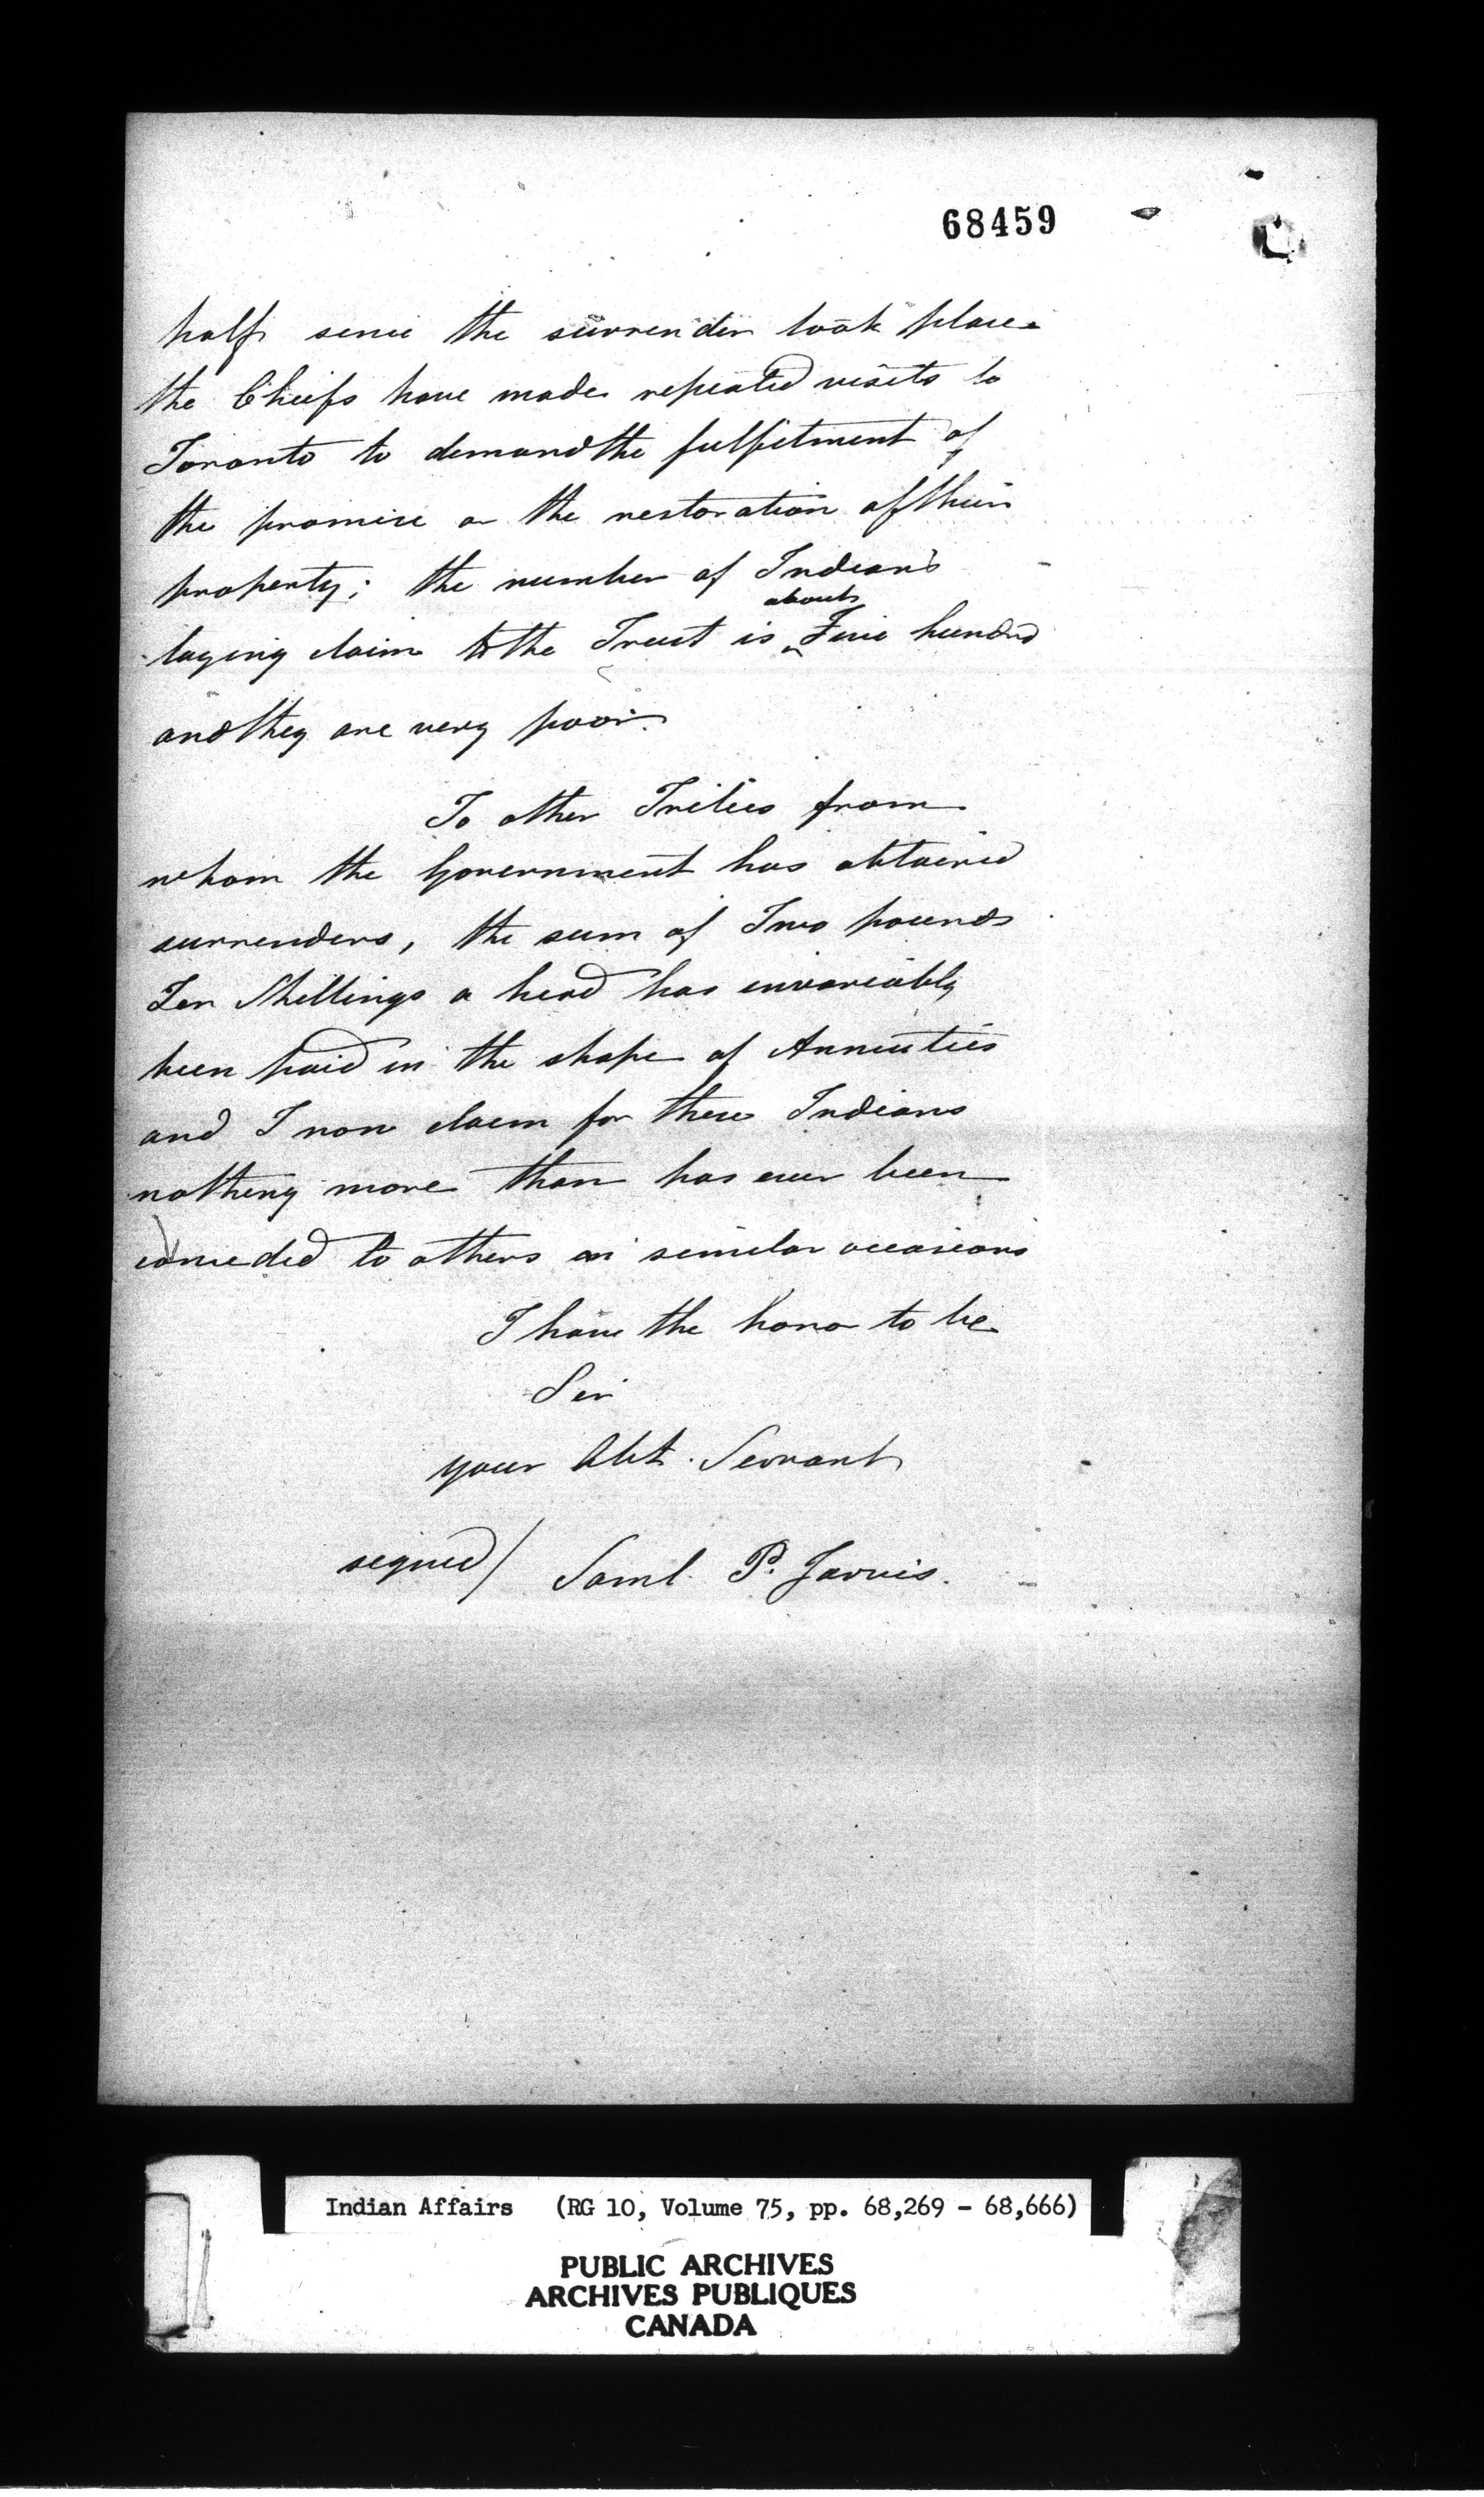 68459
half since the surrender took place
the Chiefs have made repeated visits to
Toronto to demand the fulfilment of
the promise or the restoration of their
property; the number of Indians
about
laying claim to the Trust is Five hundred
and they are very poor.
To other Tribes from
whom the Government has obtained
surrenders, the sum of Two pounds
Ten Shillings a head has invariably
been paid in the shape of Annuities
and I now claim for these Indians
nothing more than has ever been
conceded to others on similar occasions
I have the honor to be
Sir
your Obt. Servant
signed / Saml. P. Jarvis.
Indian Affairs (RG 10, Volume 75, pp. 68,269 - 68,666)
PUBLIC ARCHIVES
ARCHIVES PUBLIQUES
CANADA